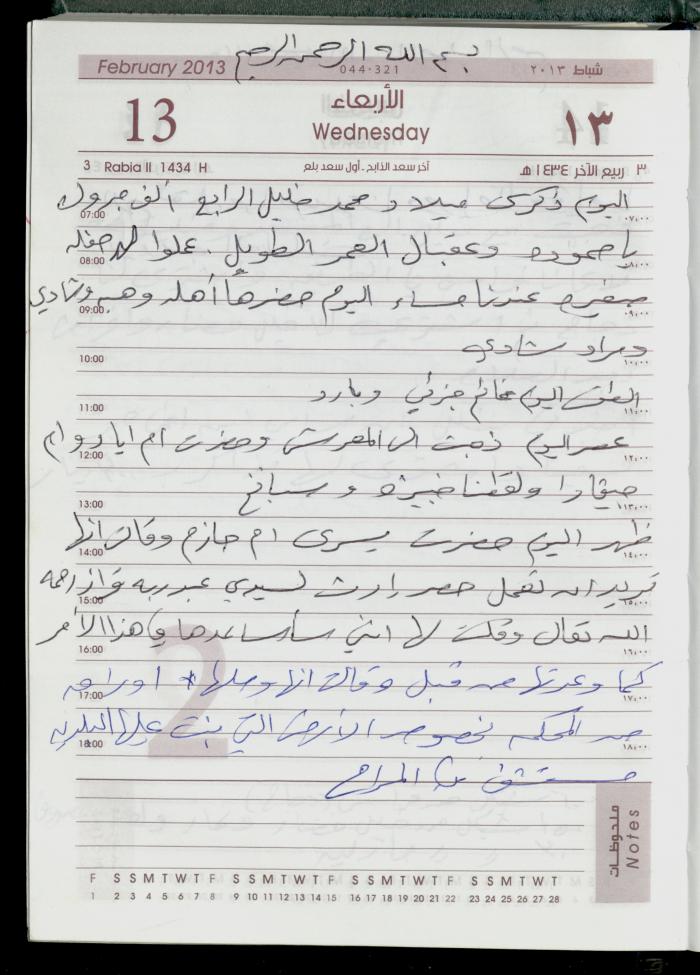 بسم الله الرحمن الرحيم
February 2013
044-321
شباط ٢٠١٣
13
الأربعاء
Wednesday
١٣
3 Rabia II 1434 H
آخر سعد الذابح - أول سعد بلع
٣ ربيع الآخر ١٤٣٤ هـ
اليوم ذكرى ميلاد محمد خليل الرابع ألف مبروك
07:00 ٠٧:٠٠
يا حموده وعقبال العمر الطويل . عملوا له حفله
08:00 ٠٨:٠٠
صغيره عندنا مساء اليوم حضرها أهله وهبه وشادي
09:00 ٠٩:٠٠
ومراد شادي
10:00 ١٠:٠٠
الطقس اليوم غائم جزئي وبارد
11:00 ١١:٠٠
عصر اليوم ذهبت الى المعرش وحضرت ام اياد وام
12:00 ١٢:٠٠
ولقطنا خبيزه وسبانخ
13:00 ١٣:٠٠
ظهر اليوم حضرت يسرى ام حازم وقالت انها
14:00 ١٤:٠٠
تريد ان تعمل حصر إرث لسيدي عبد ربه فواز رحمه
15:00 ١٥:٠٠
الله تعالى وقلت لها انني سأساعدها في هذا الأمر
16:00 ١٦:٠٠
كما وعدتها من قبل وقالت انها وصلها اوراق
17:00 ١٧:٠٠
من المحكمه بخصوص الأرض التي بنت عليها البلديه
18:00 ١٨:٠٠
مستشفى المراح
2
ملحوظات
Notes
F S S M T W T F S S M T W T F S S M T W T F S S M T W T
1 2 3 4 5 6 7 8 9 10 11 12 13 14 15 16 17 18 19 20 21 22 23 24 25 26 27 28